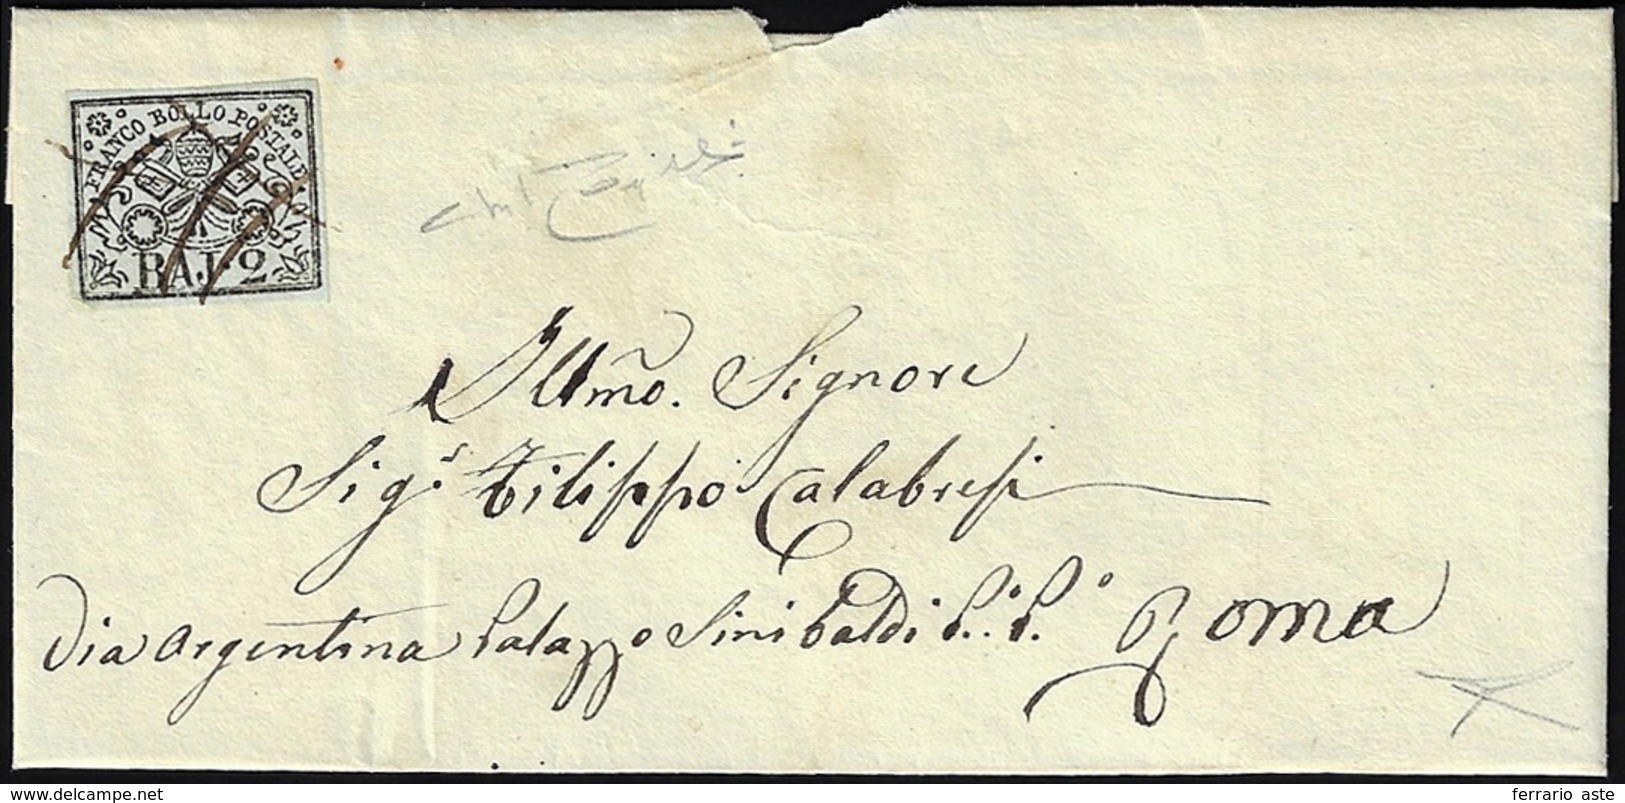 FRANCO BOLLO POSTALE
BAJ. 2
Illmõ. Signore
Sig.r Filippo Calabresi
Via Argentina Palazzo Sinibaldi P.o P.o Roma
www.delcampe.com
ferrario aste